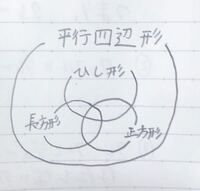 平行四辺形
ひし形
長方形
正方形